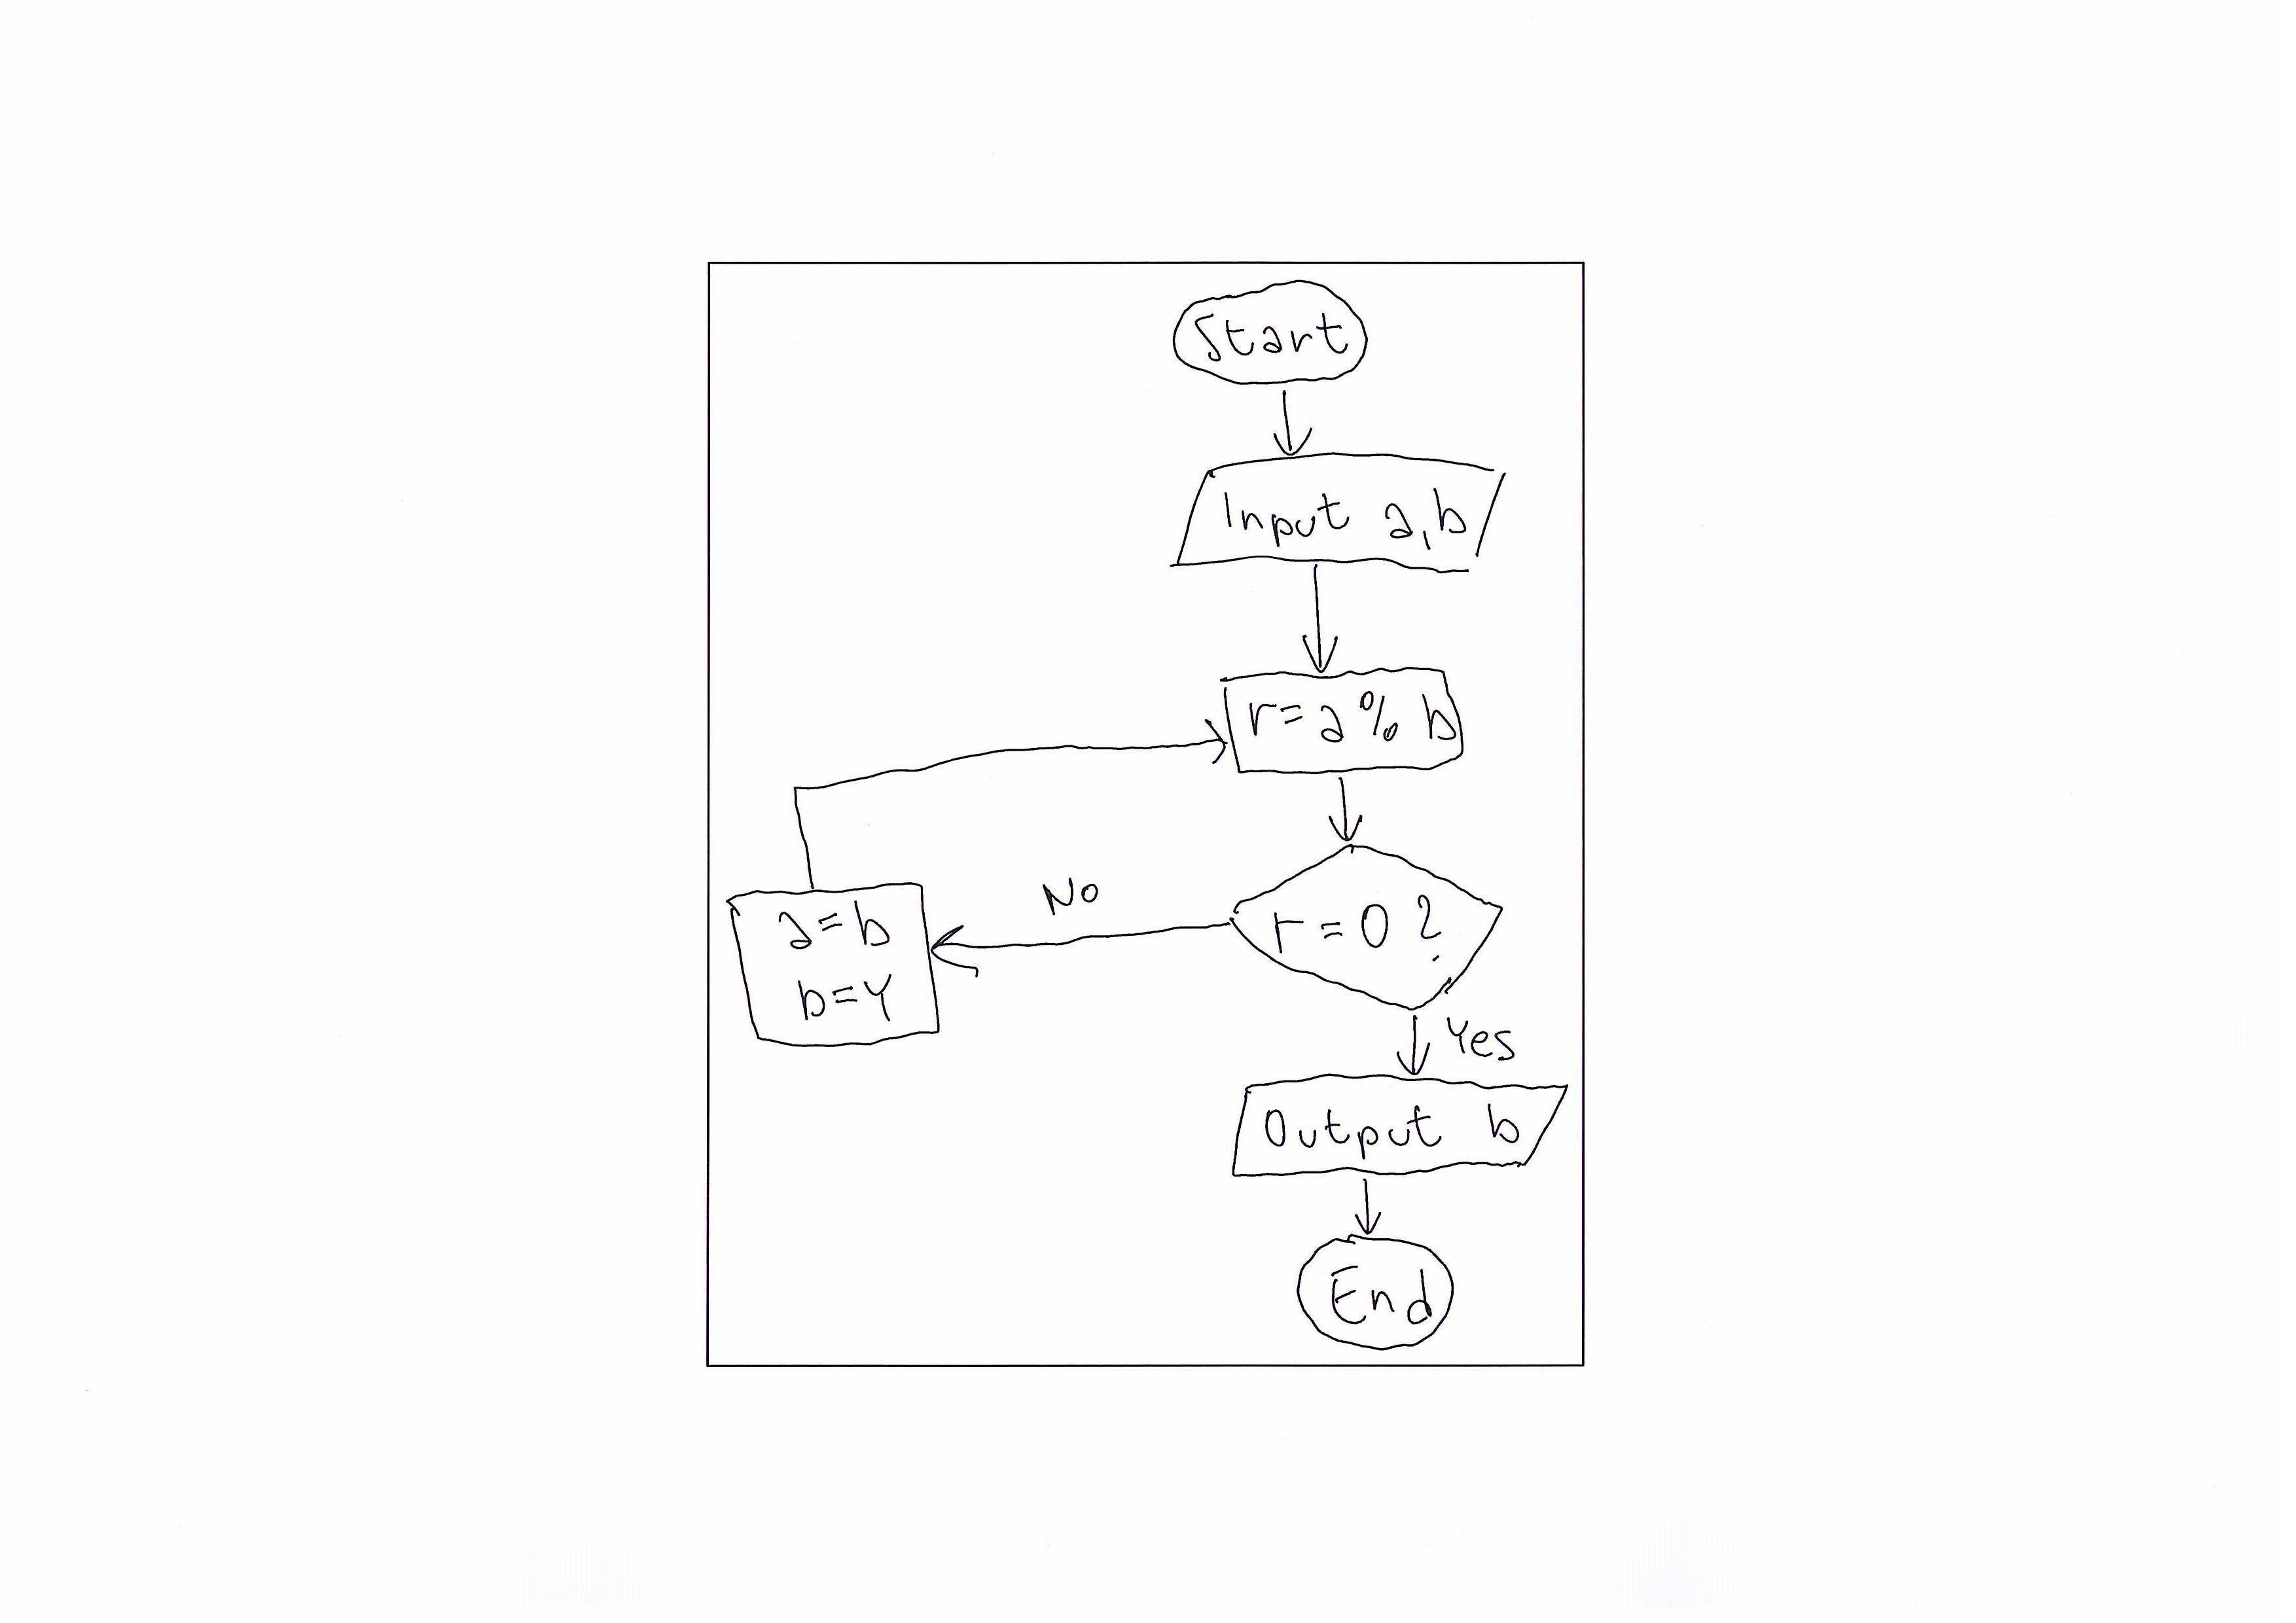 Start
Input a,b
r=a%b
No
r=0?
a=b
b=r
Yes
Output b
End